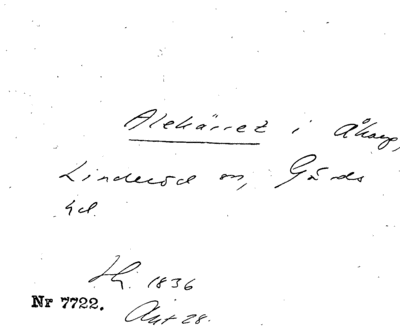 Alekärret i Åkarp,
Linderöd sn, Gärds
hd.
1836
Nr 7722. Akt 28.